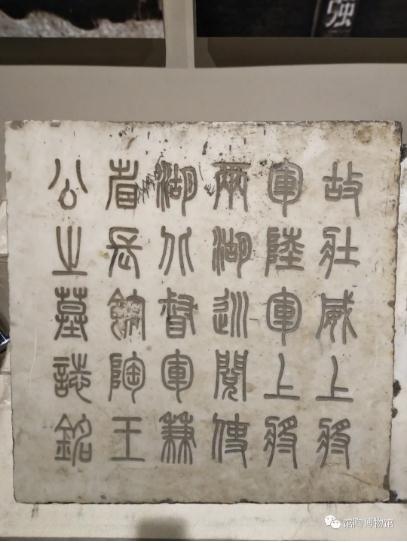 强
故壯威上將
軍陸軍上將
兩湖巡閱使
湖北督軍兼
省長館陶王
公之墓誌銘
馆陶博物馆